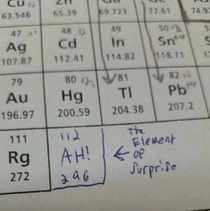 Cu
Zn
63.546
65.39
69.723
72.61
74.9
47
48
49
50
Ag
Cd
In
Sn
107.87
112.41
114.82
118.71
79
80
81
82
Au
Hg
Tl
Pb
196.97
200.59
204.38
207.2
111
112
Rg
AH!
272
296
← The
Element
of
Surprise